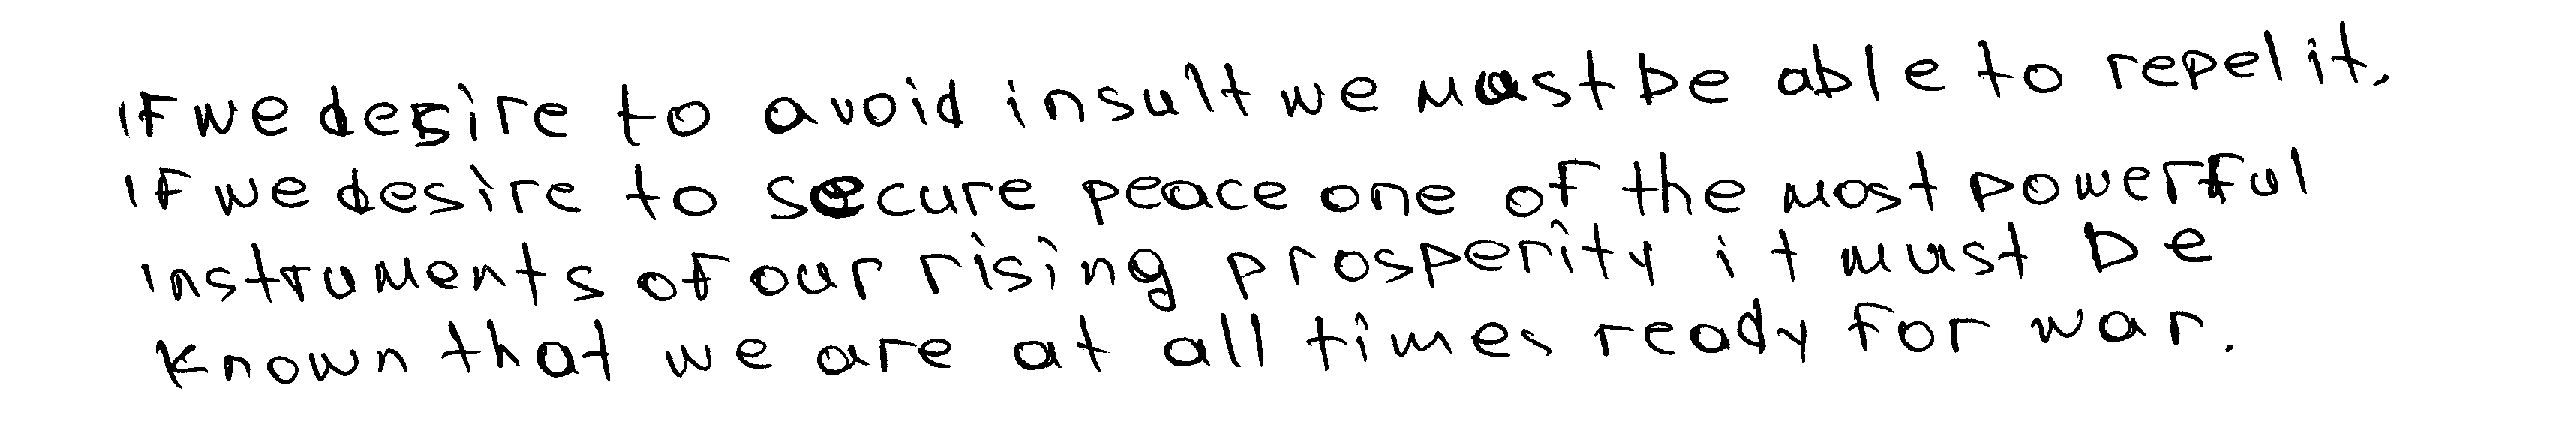 If we desire to avoid insult we must be able to repel it.
If we desire to secure peace one of the most powerful
instruments of our rising prosperity it must be
known that we are at all times ready for war.